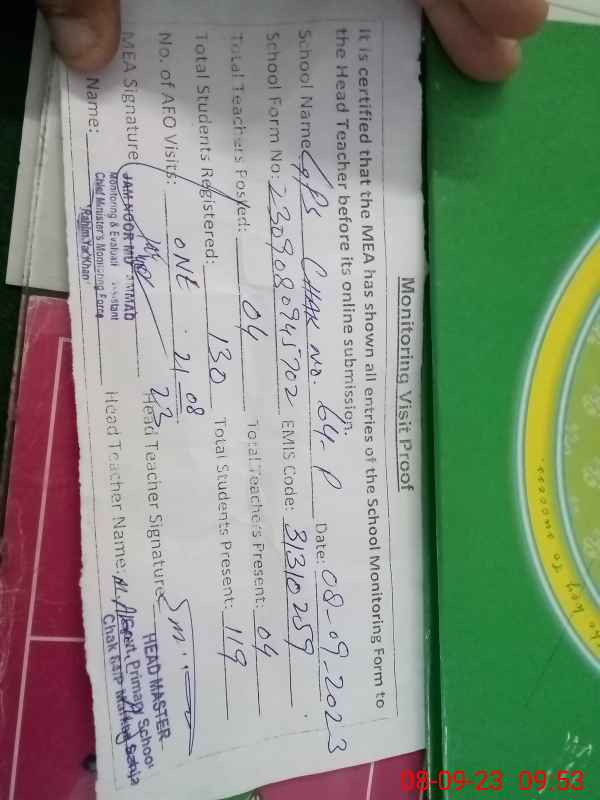 Monitoring Visit Proof
It is certified that the MEA has shown all entries of the School Monitoring Form to
the Head Teacher before its online submission.
School Name: GPS CHAK NO. 64-P Date: 08-09-2023
School Form No: 2309080945702 EMIS Code: 31310259
Total Teachers Posted: 04 Total Teachers Present: 04
Total Students Registered: 130 Total Students Present: 119
No. of AEO Visits: ONE. 21-08
23
MEA Signature Head Teacher Signature
JAM NOOR MUHAMMAD
Monitoring & Evaluation Assistant
Chief Minister's Monitoring Force
Rahim Yar Khan
Name: Head Teacher Name:
HEAD MASTER
Primary School
Chak
key to success.
08-09-23 09:53